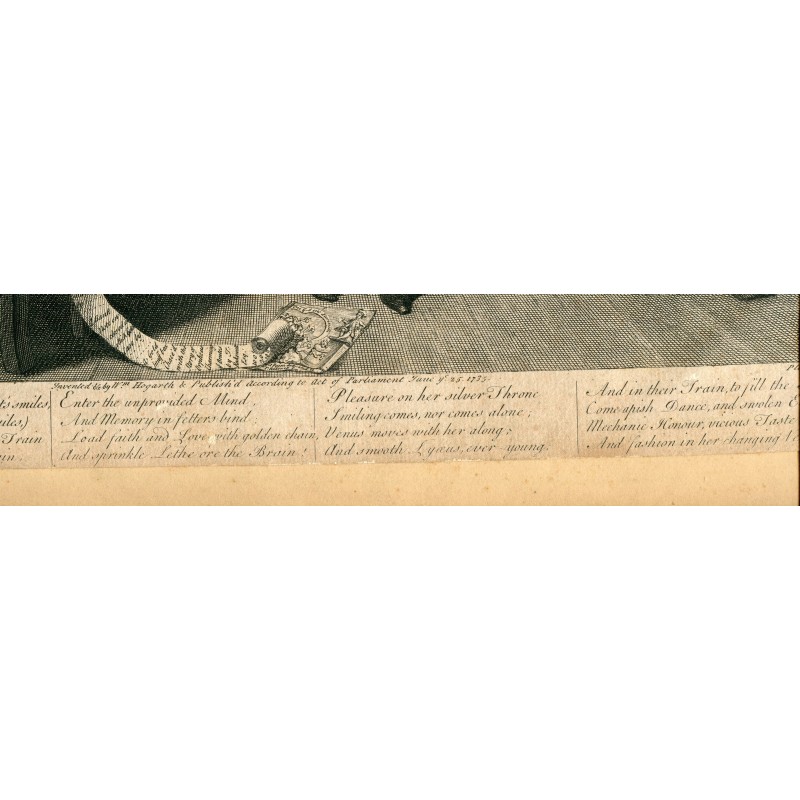 Invented &c by Wm. Hogarth & Publish'd According to Act of Parliament June ye. 25. 1735.
smiles,
Train
Enter the unprovided Mind,
And Memory in fetters bind;
Load faith and Love with golden chain,
And sprinkle Lethe o're the Brain!
Pleasure on her silver Throne
Smiling comes, nor comes alone;
Venus moves with her along;
And smooth Lyæus, ever-young.
And in their Train, to fill the
Come apish Dance, and swolen
Mechanic Honour, vicious Taste
And fashion in her changing